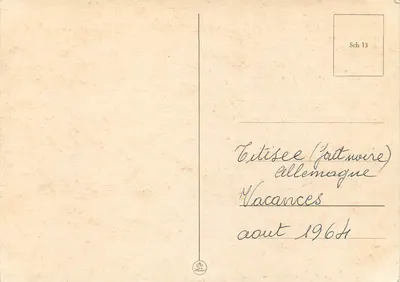 Sch 13
Titisee (fatt noire)
Allemagne
Vacances
aout 1964